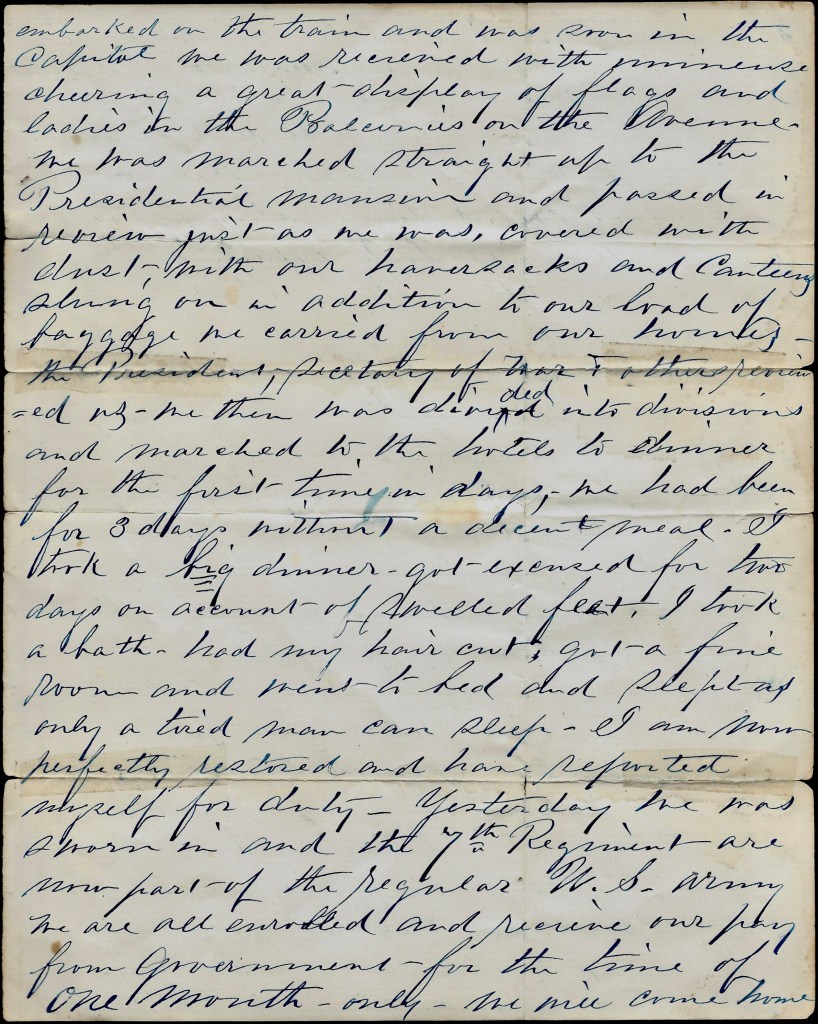 embarked on the train and was soon in the
Capitol we was recieved with immense
cheering a great display of flags and
ladies in the Balconies on the Avenue -
we was marched straight up to the
Presidential mansion and passed in
review just as we was, covered with
dust, with our haversacks and Canteens
slung on in addition to our load of
baggage we carried from our homes -
the President, Secetary of War & others review
=ed us - we then was divided into divisions
and marched to the hotels to dinner
for the first time in days, - we had been
for 3 days without a decent meal - I
took a big dinner - got excused for two
days on account of swelled feet, I took
a bath - had my hair cut, got a fine
room and went to bed and slept as
only a tired man can sleep - I am now
perfectly restored and have reported
myself for duty - Yesterday we was
sworn in and the 7th Regiment are
now part of the regular U. S. army
we are all enrolled and recieve our pay
from Government - for the time of
One Month - only - we will come home